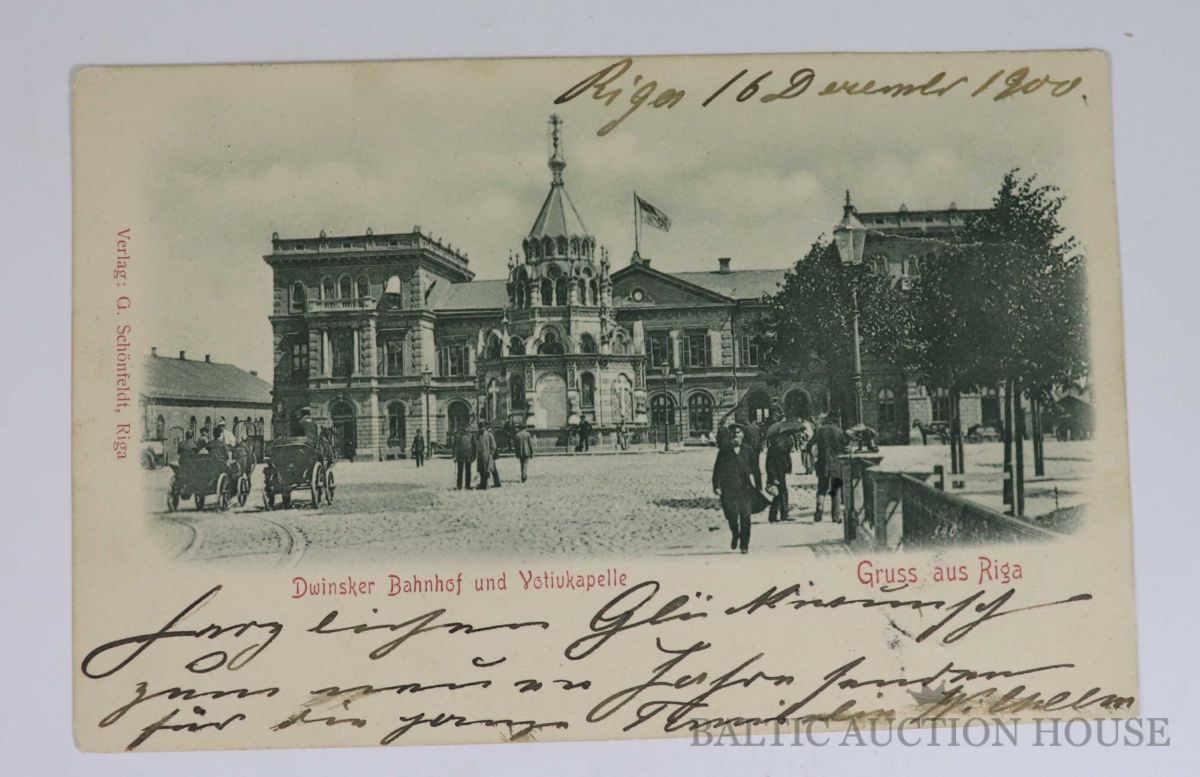 Riga 16 December 1900.
Verlag: G. Schönfeldt, Riga
Dwinsker Bahnhof und Votivkapelle
Gruss aus Riga
Herzlichen Glückwunsch
zum neuen Jahre senden
für die ganze Familie Wilhelm
BALTIC AUCTION HOUSE